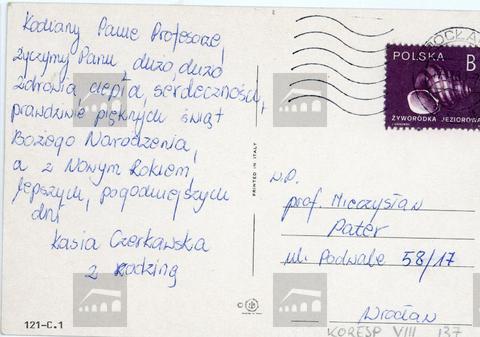 Kochany Panie Profesorze,
życzymy Panu dużo, dużo
zdrowia, ciepła, serdeczności,
prawdziwie pięknych świąt
Bożego Narodzenia,
a z Nowym Rokiem,
lepszych, pogodniejszych
dni
Kasia Czerkawska
z rodziną
121-C.1
PRINTED IN ITALY
WROCŁAW
POLSKA B
ŻYWORÓDKA JEZIOROWA
W.P.
prof. Mieczysław
Pater
ul. Podwale 58/17
Wrocław
KORESP VIII 137